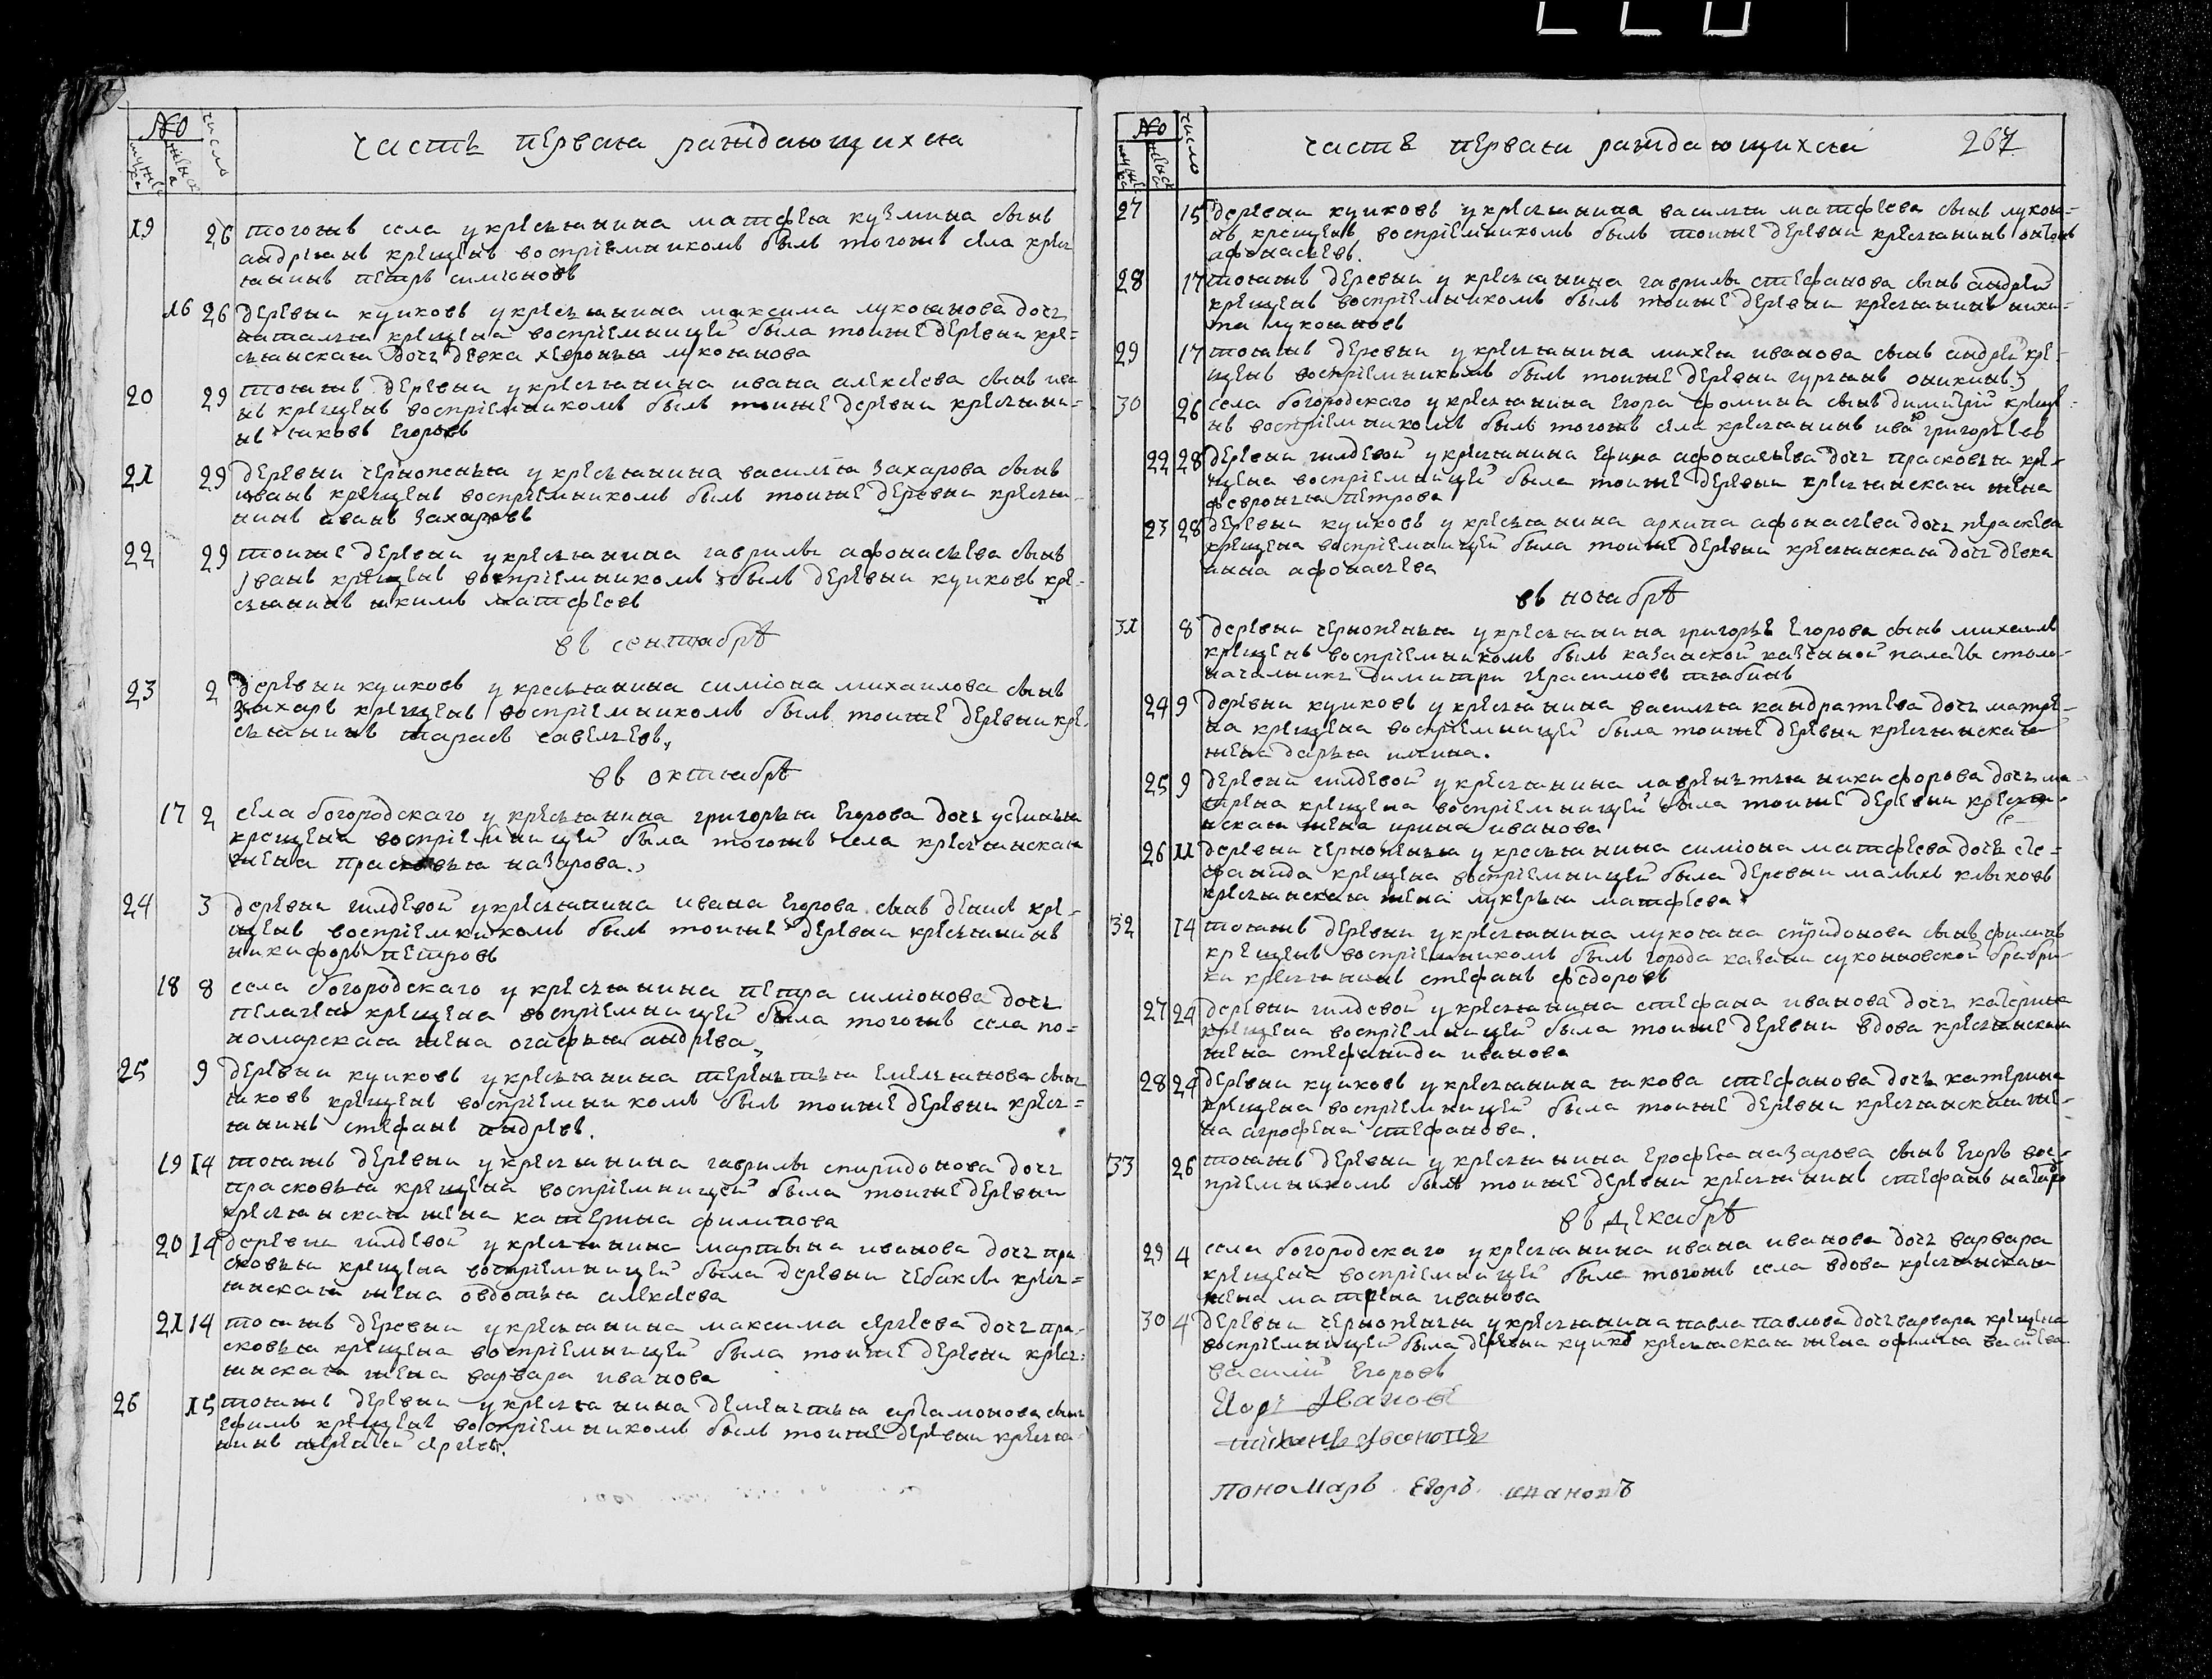 № число
мужеска женска
часть первая раждающихся
19 26 тогожъ села укресьянина матфея кузмина сынъ
андреянъ крещенъ восприемникомъ былъ тогожъ села кресь
янинъ петръ симионовъ
16 26 деревни куюковъ укресьянина максима лукоянова дочь
наталья крещена восприемницей была тоиже деревни кре-
сьянская дочь девка хевронья лукоянова
20 29 тояжъ деревни укресьянина ивана алексеева сынъ ива
нъ крещенъ восприемникомъ былъ тоиже деревни кресьяни-
нъ яковъ егоровъ
21 29 деревни укресьянина василья захарова сынъ
иванъ крещенъ восприемникомъ былъ тоиже деревни кресья-
нинъ иванъ захаровъ
22 29 тоиже деревни укресьянина гаврилы афонасьева сынъ
иванъ крещенъ восприемникомъ былъ деревни куюковъ кре-
сьянинъ якимъ матфеевъ
въ сентябрѣ
23 2 деревни куюковъ укресьянина симиона михаилова сынъ
захаръ крещенъ восприемникомъ былъ тоиже деревни кре-
сьянинъ тарасъ савельевъ,,
въ октябрѣ
17 2 села богородскаго укресьянина григорья егорова дочь устинья
крещена восприемницей была тогожъ села кресьянская
жена прасковья назарова.
24 3 деревни гилдевой укресьянина ивана егорова сынъ денис кре-
щенъ восприемникомъ былъ тоиже деревни кресьянинъ
никифоръ петровъ
18 8 села богородскаго укресьянина петра симионова дочь
пелагея крещена восприемницей была тогожъ села по=
номарская жена огафья андреева,,
25 9 деревни куюковъ укресьянина терентья емельянова сынъ
яковъ крещенъ восприемникомъ былъ тоиже деревни кресь=
янинъ стефанъ андреевъ.
19 14 тояжъ деревни укресьянина гаврилы спиридонова дочь
прасковья крещена восприемницей была тоиже деревни
кресьянская жена катерина филипова
20 14 деревни гилдевой укресьянина мартына иванова дочь пра
сковья крещена восприемницей была деревни чебакси кресь=
янская жена овдотья алексеева
21 14 тояжъ деревни укресьянина максима сергеева дочь пра-
сковья крещена восприемницей была тоиже деревни кресь=
янская жена варвара иванова
26 15 тояжъ деревни укресьянина дементья артамонова сынъ
ефимъ крещенъ восприемникомъ былъ тоиже деревни кресья-
нинъ сергеевъ.
№ число
мужеска женска
часть первая раждающихся 267
27 15 деревни куюковъ укресьянина василья матфеева сынъ лукоя-
нъ крещенъ восприемникомъ былъ тоиже деревни кресьянинъ
афонасьевъ.
28 17 тояжъ деревни укресьянина гаврилы стефанова сынъ андреи
крещенъ восприемникомъ былъ тоиже деревни кресьянинъ ники-
та лукояновъ
29 17 тояжъ деревни укресьянина михея иванова сынъ андреи кре-
щенъ восприемникомъ былъ тоиже деревни гурьянъ оникинъ
30 26 села богородскаго укресьянина егора фомина сынъ димитрий креще-
нъ восприемникомъ былъ тогожъ села кресьянинъ иванъ григорьевъ
22 28 деревни гилдевой укресьянина ефима афонасьева дочь прасковья кре-
щена восприемницей была тоиже деревни кресьянская жена
февронья петрова
23 28 деревни куюковъ укресьянина архипа афонасьева дочь пераскева
крещена восприемницей была тоиже деревни кресьянская дочь девка
анна афонасьева
въ ноябрѣ
31 8 деревни укресьянина григорья егорова сынъ михаилъ
крещенъ восприемникомъ былъ казанской казенной палаты столо-
начальникъ димитри герасимовъ
24 9 деревни куюковъ укресьянина василья кандратьева дочь матре-
на крещена восприемницей была тоиже деревни кресьянская
жена дарья ильина.
25 9 деревни гилдевой укресьянина лаврентья никифорова дочь ма-
трена крещена восприемницей была тоиже деревни кресья-
нская жена ирина иванова
26 11 деревни укресьянина симиона матфеева дочь сте-
фанида крещена восприемницей была деревни малыхъ клыковъ
кресьянская жена лукерья матфеева
32 14 тояжъ деревни укресьянина лукояна спиридонова сынъ филипъ
крещенъ восприемникомъ былъ города казани суконовской фабри-
ки кресьянинъ стефанъ федоровъ
27 24 деревни гилдевой укресьянина стефана иванова дочь катерина
крещена восприемницей была тоиже деревни вдова кресьянская
жена стефанида иванова
28 24 деревни куюковъ укресьянина якова стефанова дочь катерина
крещена восприемницей была тоиже деревни кресьянская же-
на агрофена стефанова.
33 26 тояжъ деревни укресьянина ерофея назарова сынъ егоръ вос-
приемникомъ былъ тоиже деревни кресьянинъ стефанъ назаро
въ декабрѣ
29 4 села богородскаго укресьянина ивана иванова дочь варвара
крещена восприемницей была тогожъ села вдова кресьянская
жена матрена иванова
30 4 деревни укресьянина павла павлова дочь варвара крещена
восприемницей была деревни куюко кресьянская жена офимья васильева
василий егоровъ
егоръ Ивановъ
пономарь Егоръ ивановъ